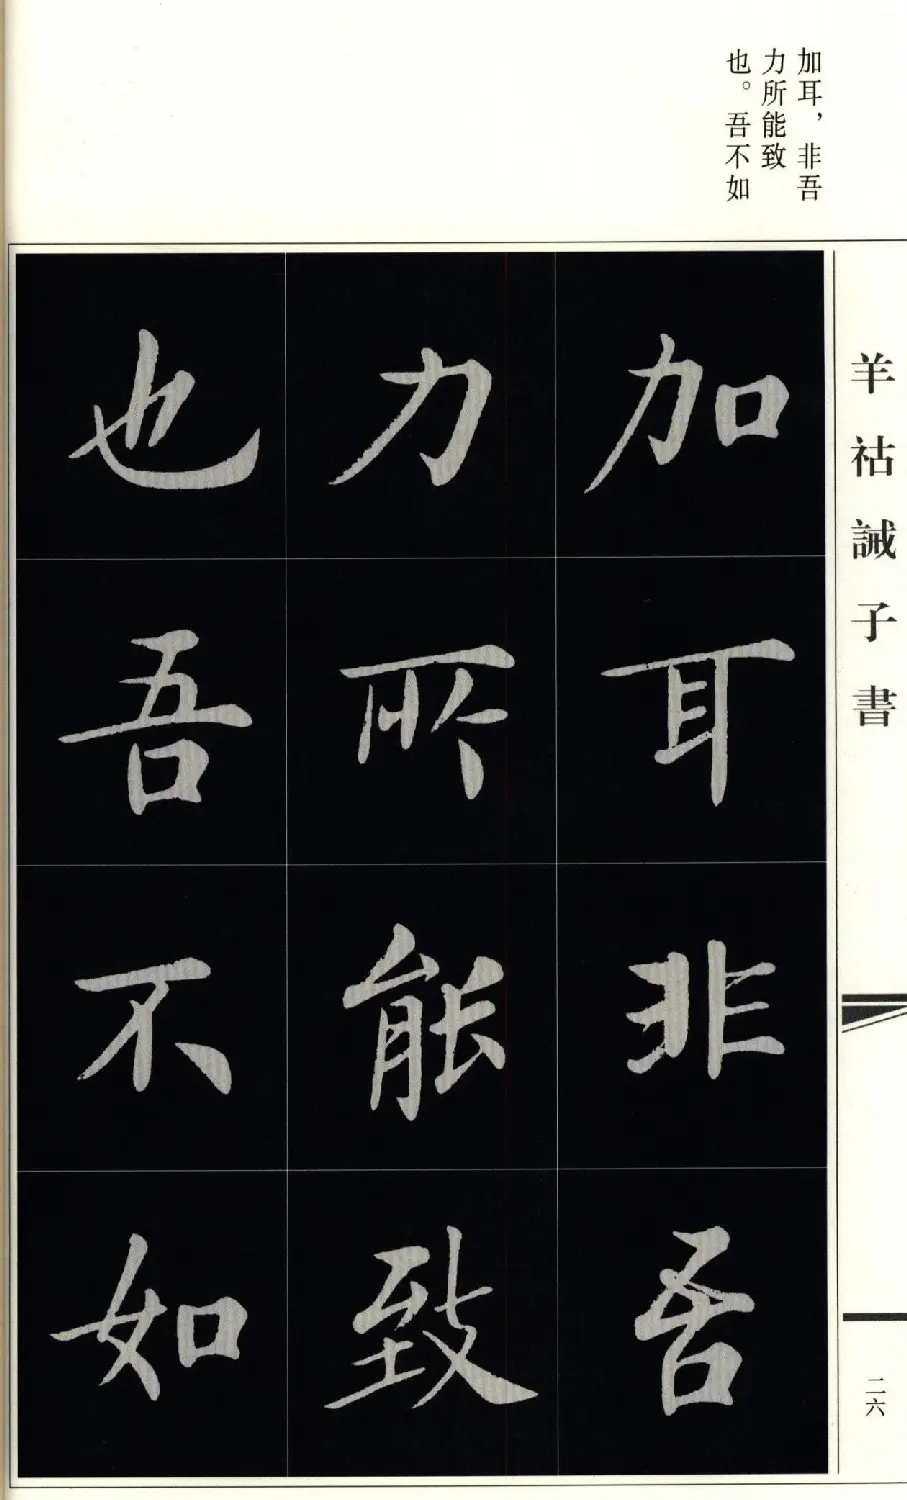 加耳，非吾
力所能致
也。吾不如
羊祜誡子書
加耳非吾
力所能致
也吾不如
二六